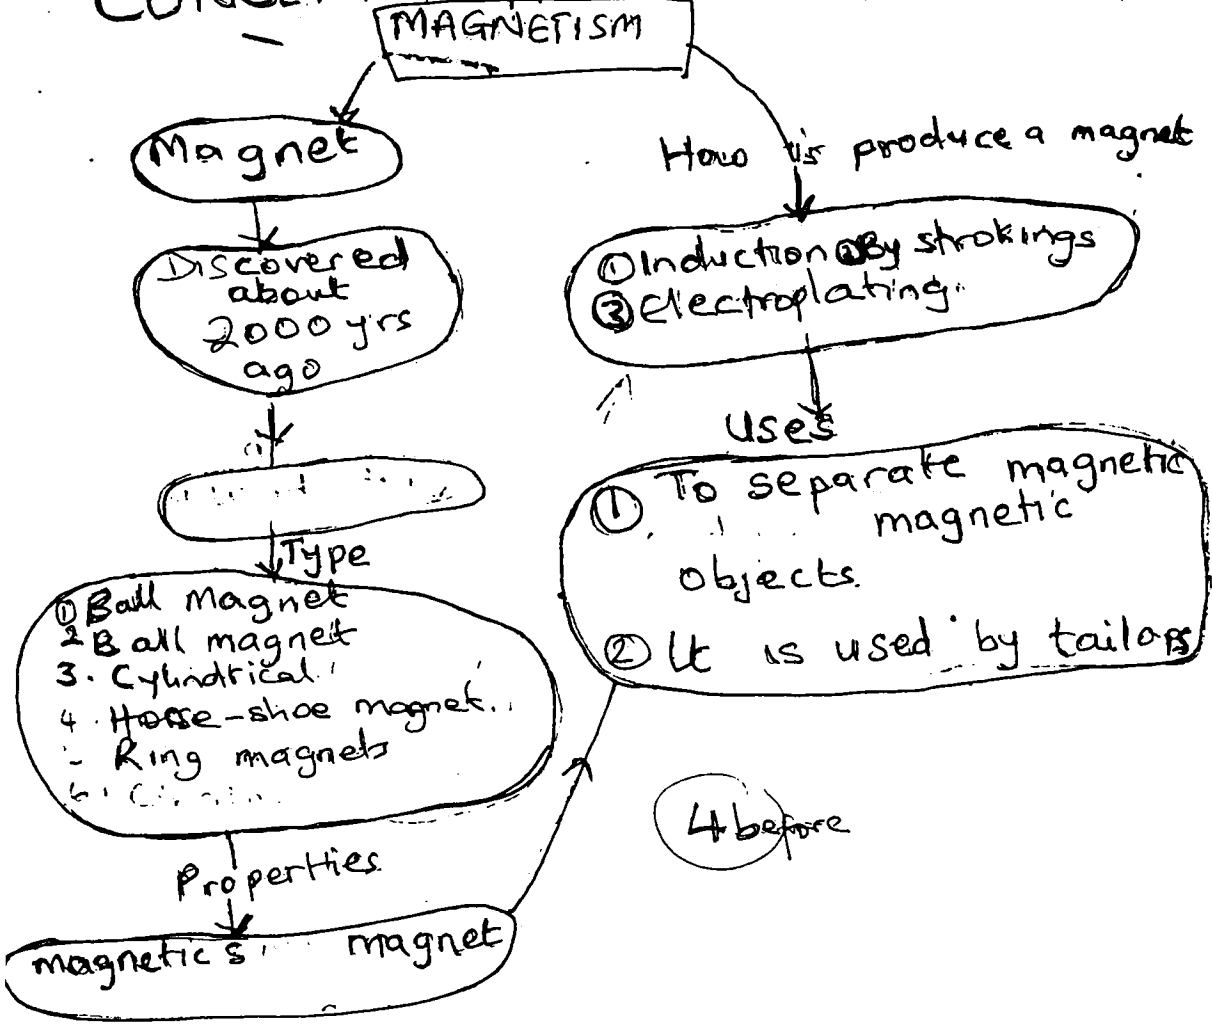 MAGNETISM
Magnet
Discovered
about
2000 yrs
ago
Type
① Ball Magnet
2 Ball magnet
3. Cylindtrical
4. Horse-shoe magnet.
- Ring magnets
6.
Properties
magnetic s magnet
How is produce a magnet
① Induction ② By strokings
③ electroplating.
Uses
① To separate magnetic
magnetic
objects.
② It is used by tailors
4 before